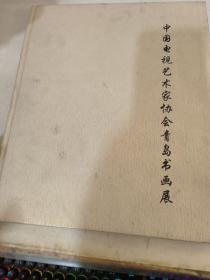 中国电视艺术家协会青岛书画展